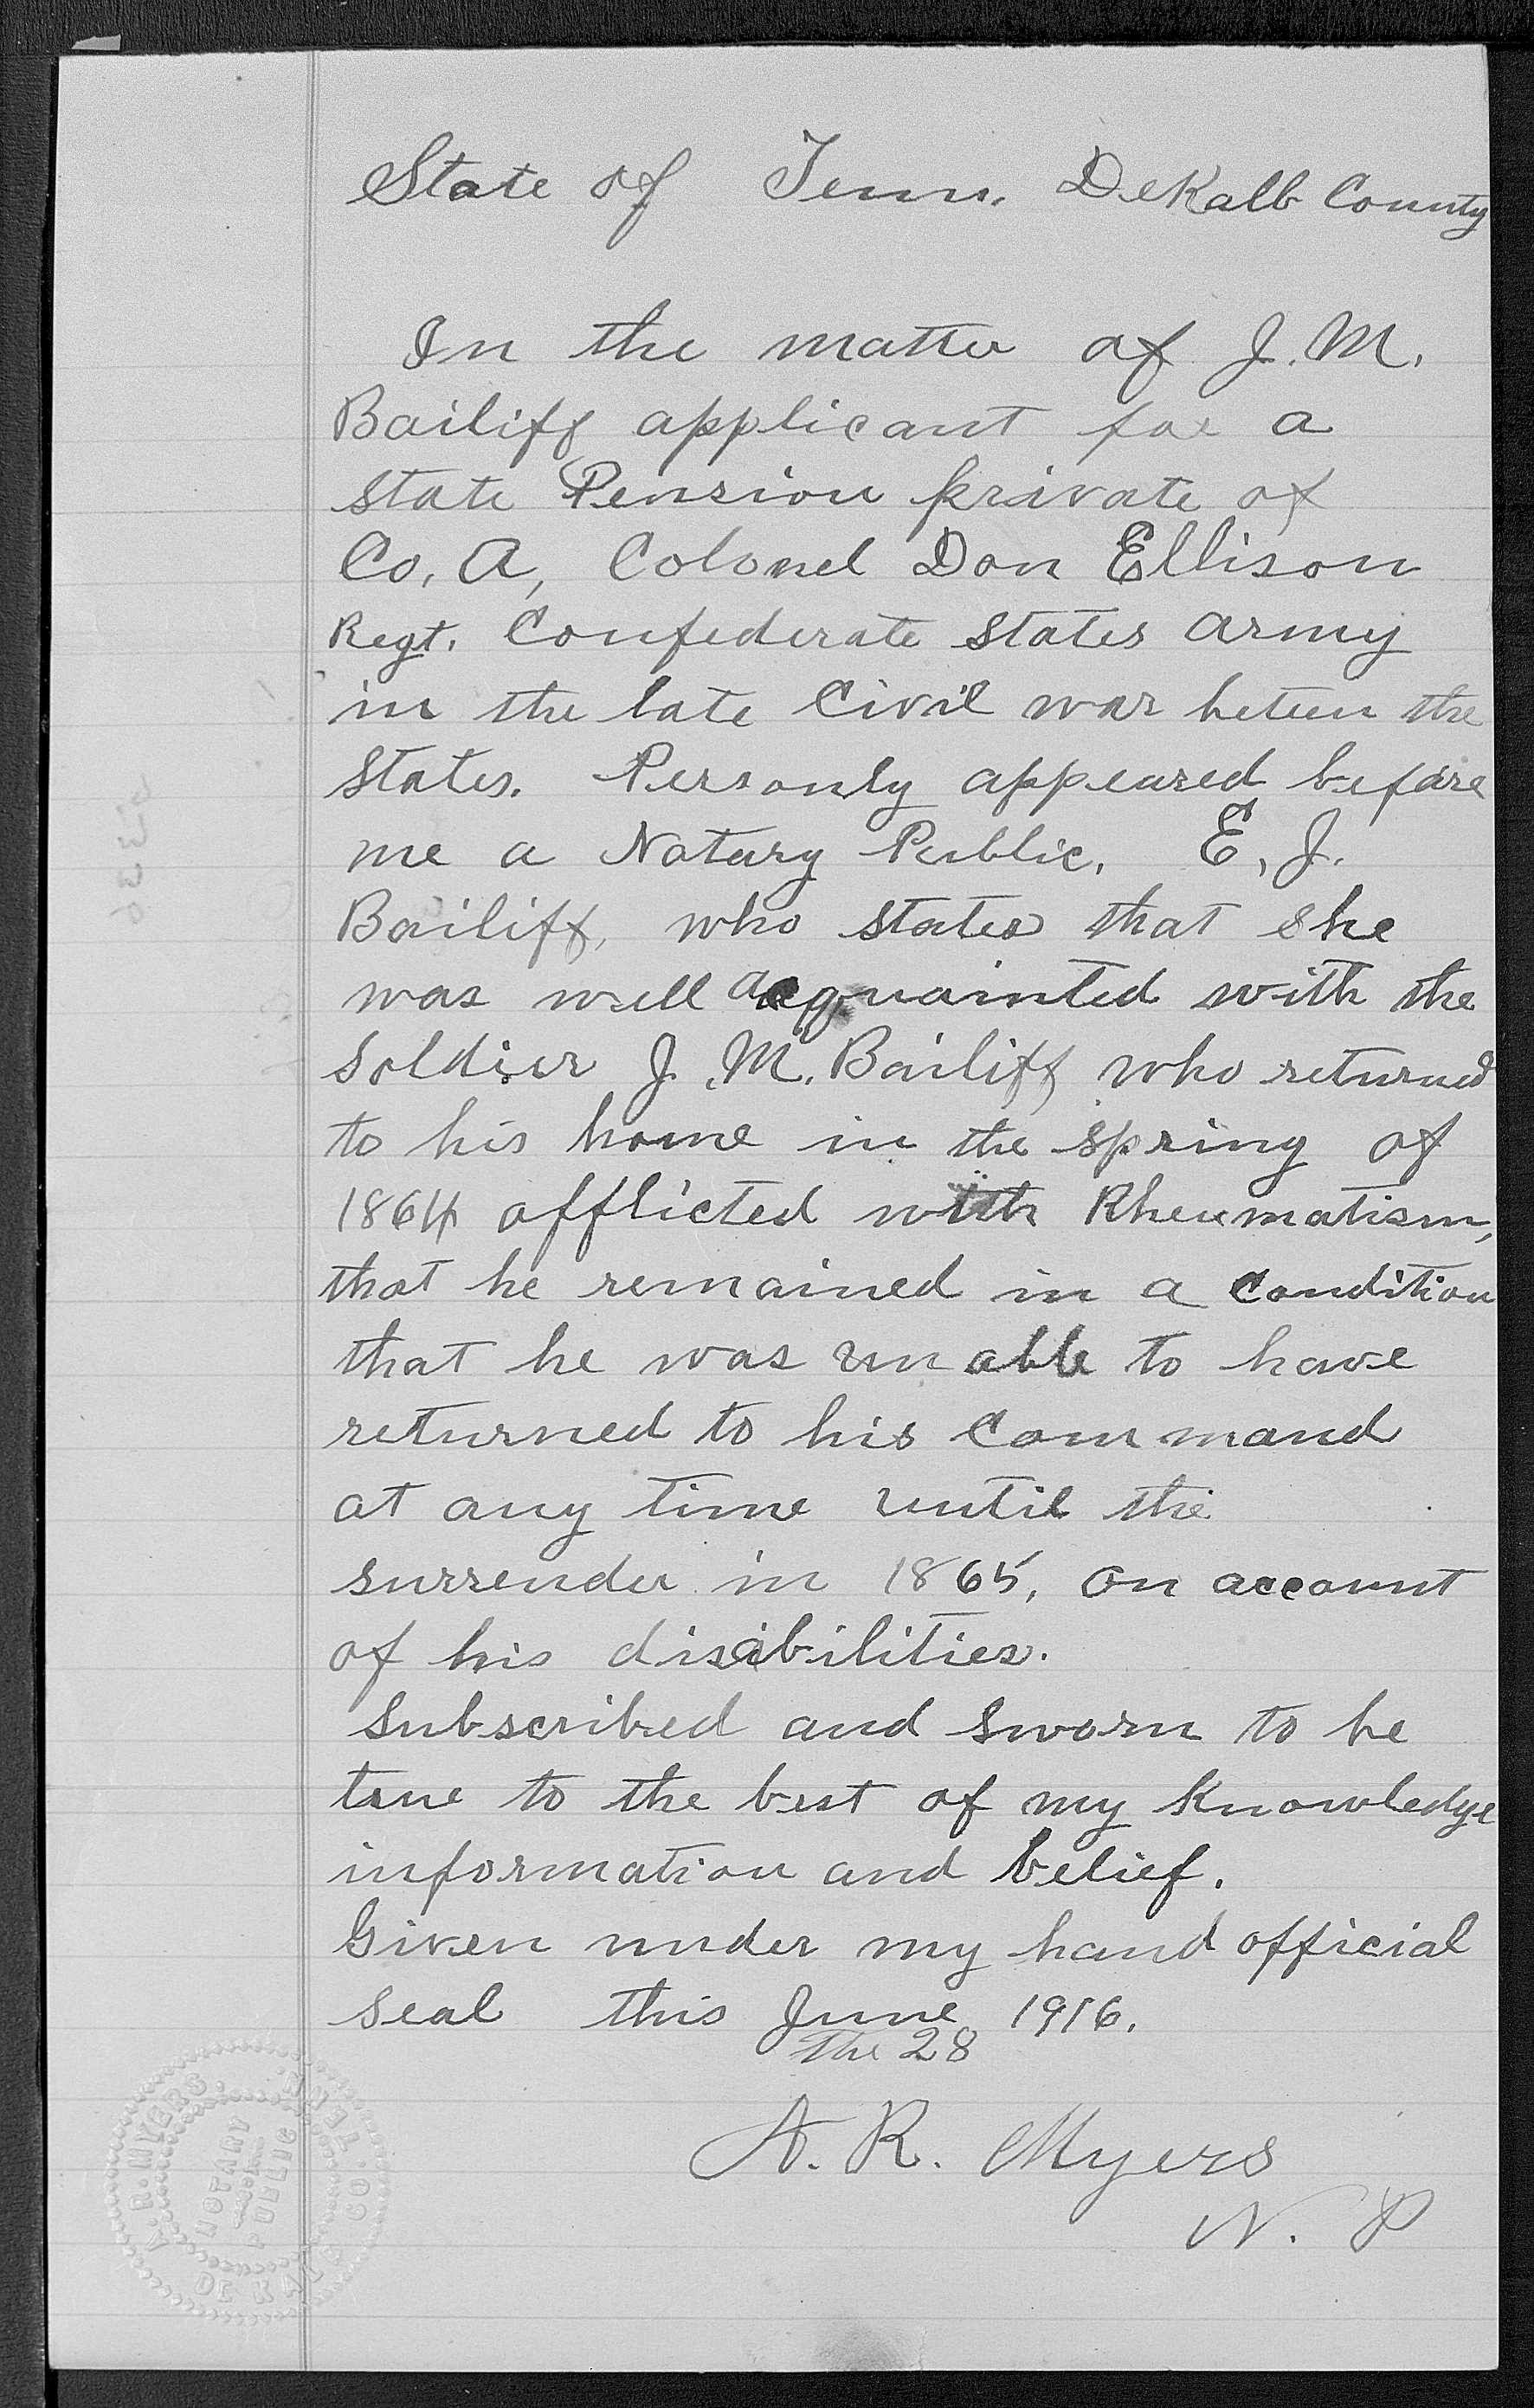 State of Tenn. DeKalb County
In the matter of J. M.
Bailiff applicant for a
state Pension private of
Co, A, Colonel Don Ellison
Regt. Confederate States army
in the late Civil war beteen the
States. Personly appeared before
me a Notary Public, E, J.
Bailiff, who states that she
was well acquainted with the
soldier J. M. Bailiff who returned
to his home in the spring of
1864 afflicted with Rheumatism,
that he remained in a condition
that he was unable to have
returned to his command
at any time until the
surrender in 1865, on account
of his disabilities.
Subscribed and sworn to be
true to the best of my knowledge
information and belief.
Given under my hand official
seal this June 1916.
the 28
A. R. Myers
N. P
A. R. MYERS.
NOTARY
PUBLIC
DE KALB CO. TENN.